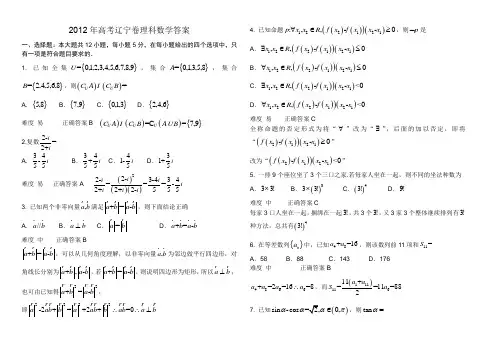 2012年高考辽宁卷理科数学答案
一、选择题:本大题共12小题,每小题5分,在每小题给出的四个选项中,只有一项是符合题目要求的.
1. 已知全集U={0,1,2,3,4,5,6,7,8,9}, 集合A={0,1,3,5,8}, 集合
B={2,4,5,6,8}, 则(C_U A) I (C_U B)=
A. {5,8} B. {7,9} C. {0,1,3} D. {2,4,6}
难度 易 正确答案B (C_U A) I (C_U B)=C_U(AUB)={7,9}
2.复数 (2-i)/(2+i)=
A. 3/5-4/5i B. 3/5+4/5i C. 1-4/5i D. 1+3/5i
难度 易 正确答案A (2-i)/(2+i)=(2-i)²/((2+i)(2-i))=(3-4i)/5=3/5-4/5i
3. 已知两个非零向量a,b满足|a+b|=|a-b|, 则下面结论正确
A. a//b B. a⊥b C. |a|=|b| D. a+b=a-b
难度 中 正确答案B
|a+b|=|a-b|, 可以从几何角度理解, 以非零向量a,b为邻边做平行四边形, 对
角线长分别为|a+b|,|a-b|, 若|a+b|=|a-b|, 则说明四边形为矩形, 所以a⊥b,
也可由已知得|a+b|²=|a-b|²,
即a²-2ab+b²=a²+2ab+b² ∴ab=0∴a⊥b
4. 已知命题p:∀x₁,x₂∈R,(f(x₂)-f(x₁))(x₂-x₁)≥0, 则¬p是
A. ∃x₁,x₂∈R,(f(x₂)-f(x₁))(x₂-x₁)≤0
B. ∀x₁,x₂∈R,(f(x₂)-f(x₁))(x₂-x₁)≤0
C. ∃x₁,x₂∈R,(f(x₂)-f(x₁))(x₂-x₁)<0
D. ∀x₁,x₂∈R,(f(x₂)-f(x₁))(x₂-x₁)<0
难度 易 正确答案C
全称命题的否定形式为将“∀”改为“∃”, 后面的加以否定, 即将
“(f(x₂)-f(x₁))(x₂-x₁)≥0”
改为“(f(x₂)-f(x₁))(x₂-x₁)<0”
5. 一排9个座位坐了3个三口之家.若每家人坐在一起, 则不同的坐法种数为
A. 3×3! B. 3×(3!)³ C. (3!)⁴ D. 9!
难度 中 正确答案C
每家3口人坐在一起, 捆绑在一起3!, 共3个3!, 又3家3个整体继续排列有3!
种方法, 总共有(3!)⁴
6. 在等差数列{aₙ}中, 已知a₄+a₈=16, 则该数列前11项和S₁₁=
A. 58 B. 88 C. 143 D. 176
难度 中 正确答案B
a₄+a₈=2a₆=16∴a₆=8, 而S₁₁=11(a₁+a₁₁)/2=11a₆=88
7. 已知sinα-cosα=√2,α∈(0,π), 则tanα=